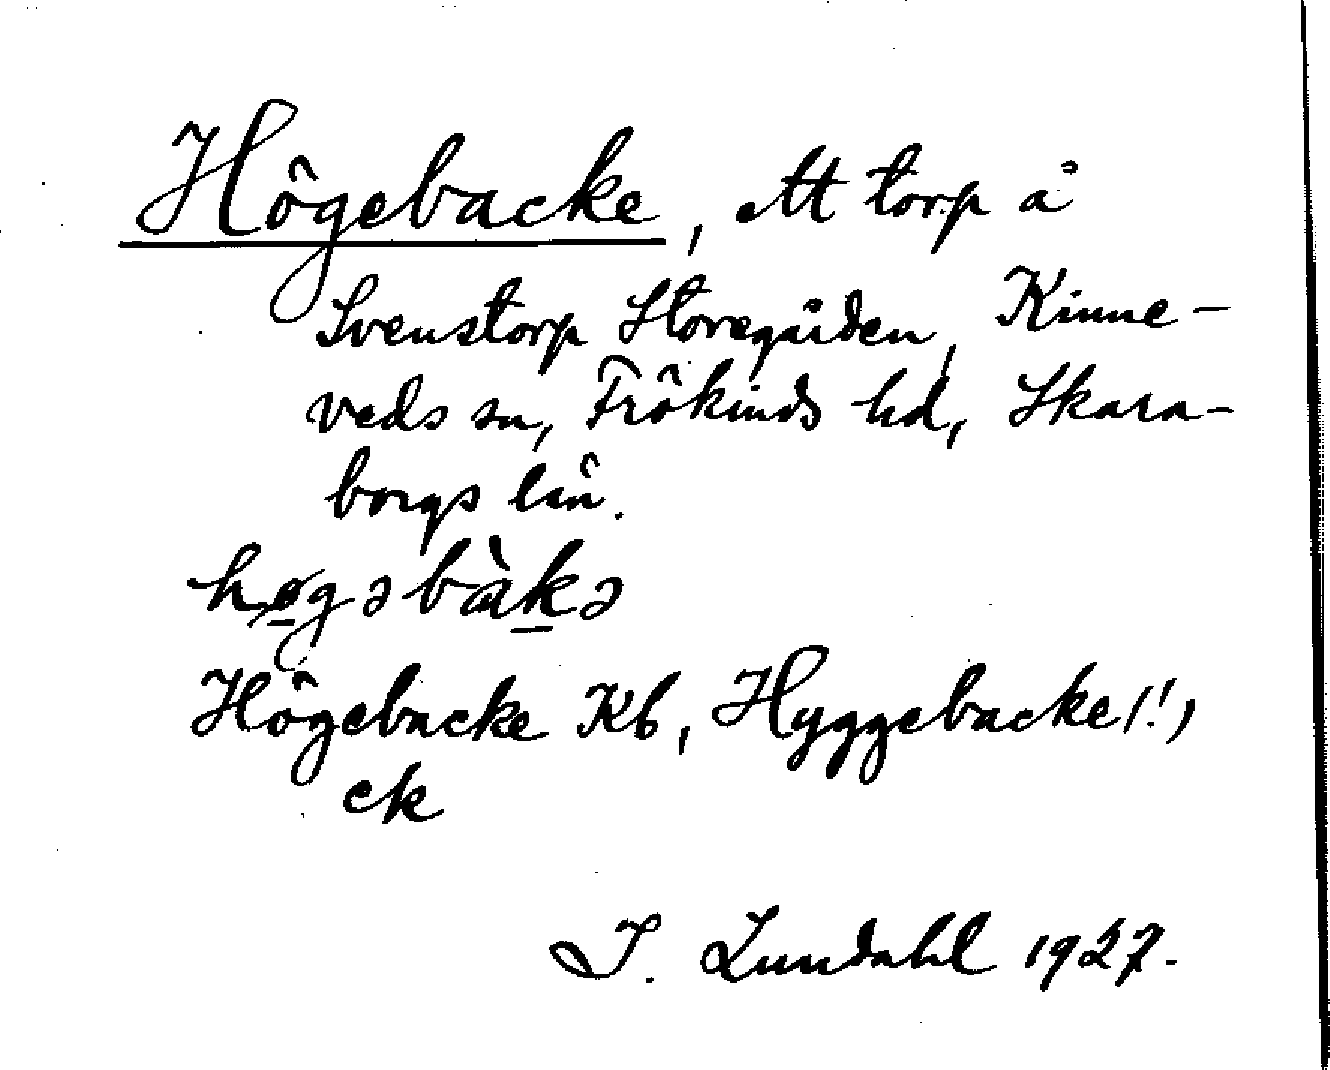 Högebacke, ett torp å
Svenstorp Storegården, Kinne-
veds sn, Frökinds hd, Skara-
borgs län.
høgəbàkə
Högebacke Kb, Hyggebacke(!),
ek
I. Lundahl 1927.